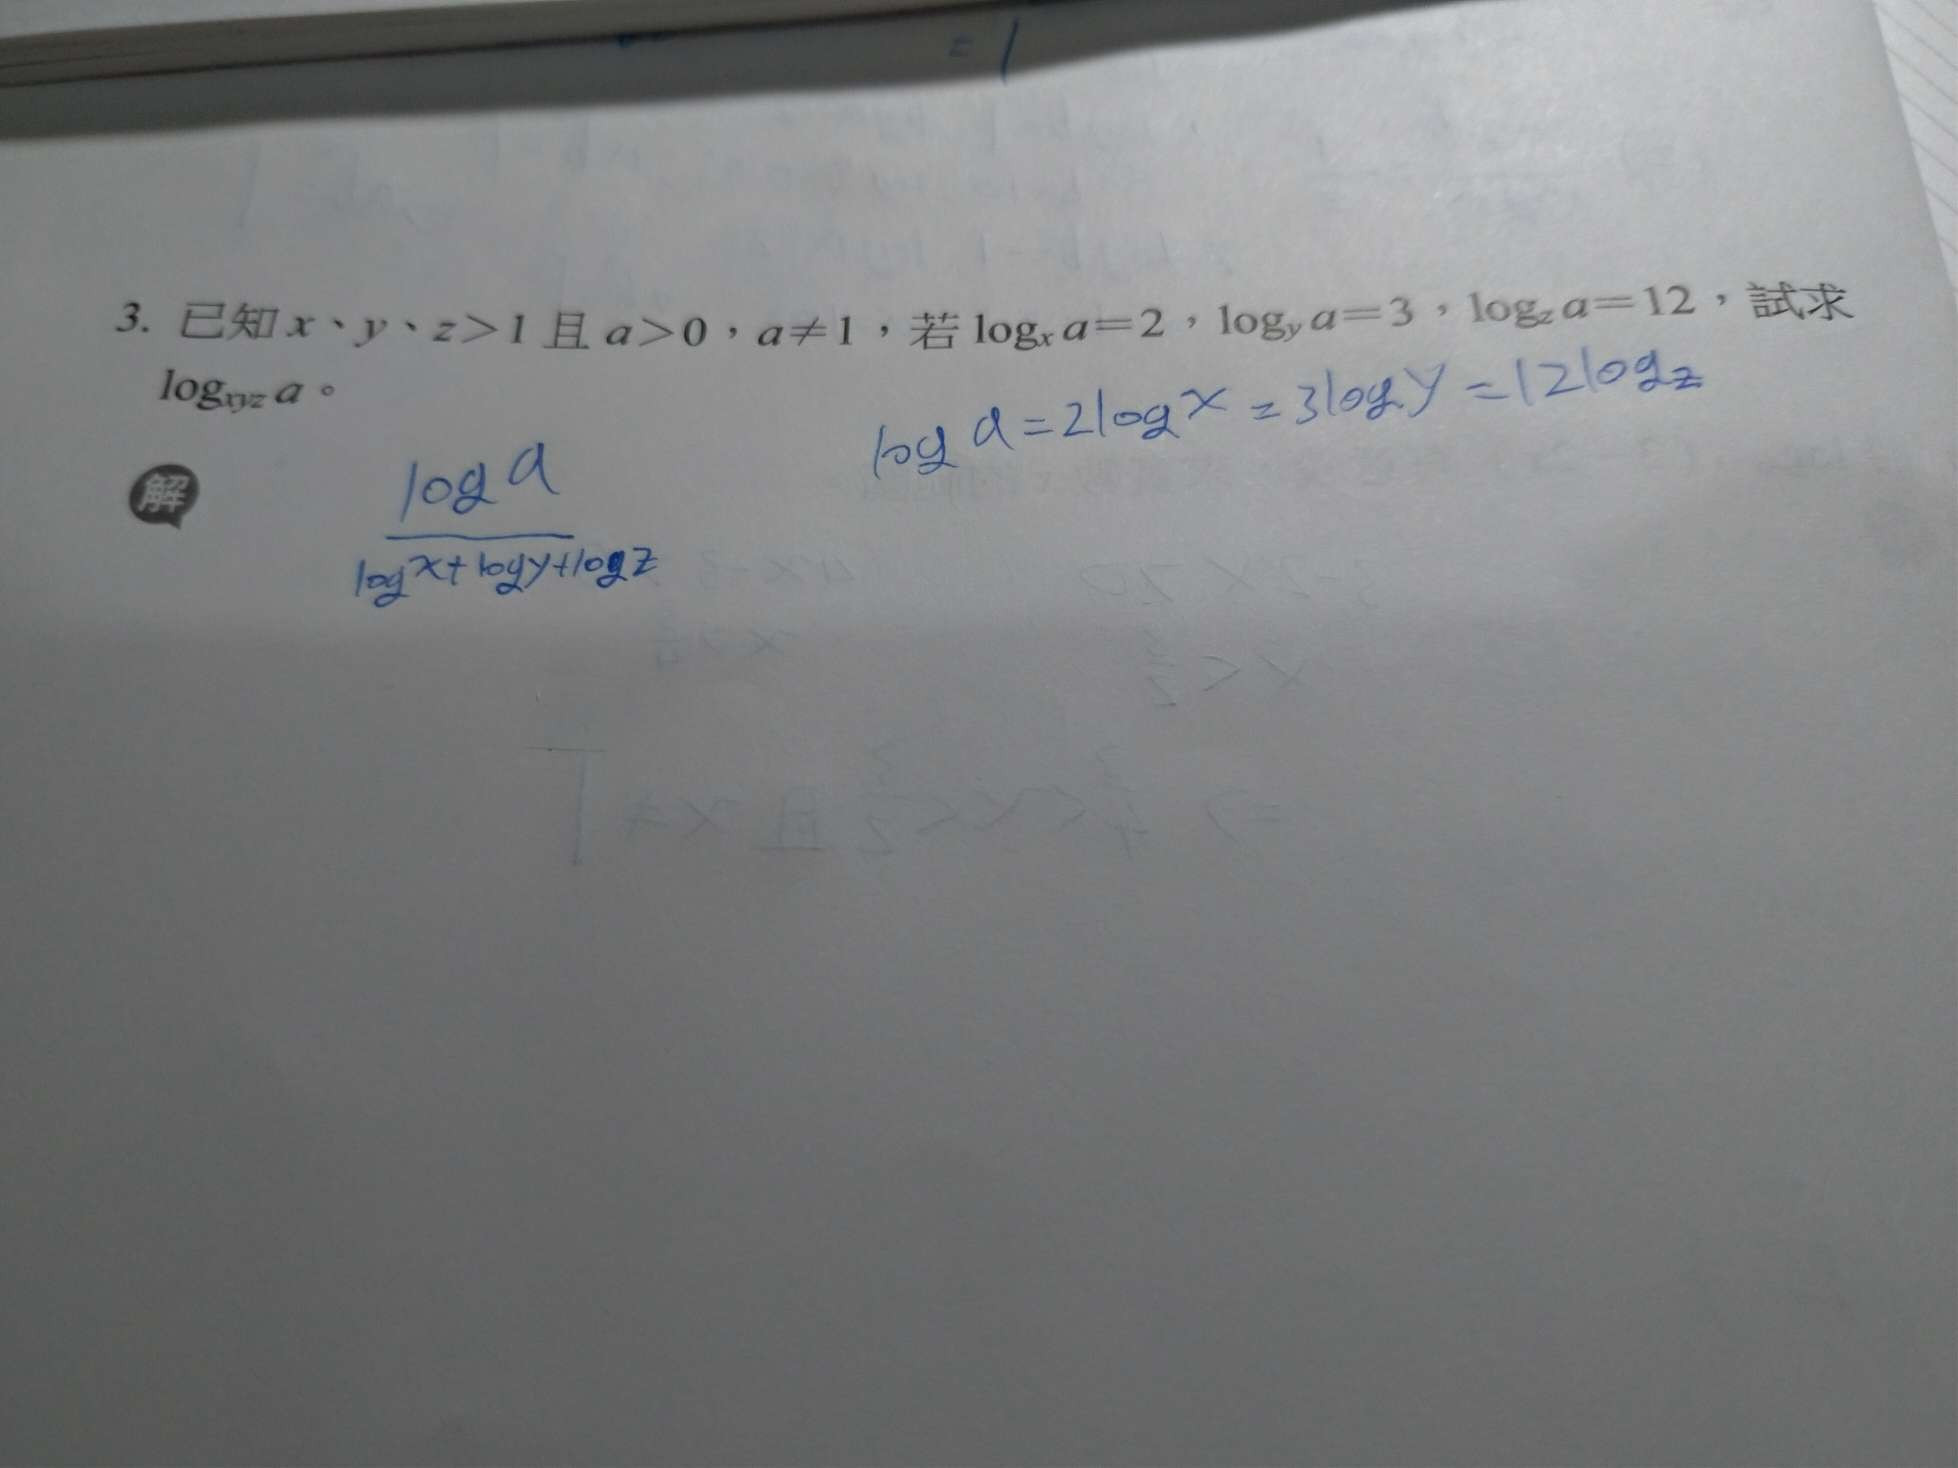 = 1
3. 已知 x、y、z>1 且 a>0，a≠1，若 logₓ a=2，log_y a=3，log_z a=12，試求
log_xyz a。
log a=2logx=3logy=12logz
解
log a
logx+logy+logz